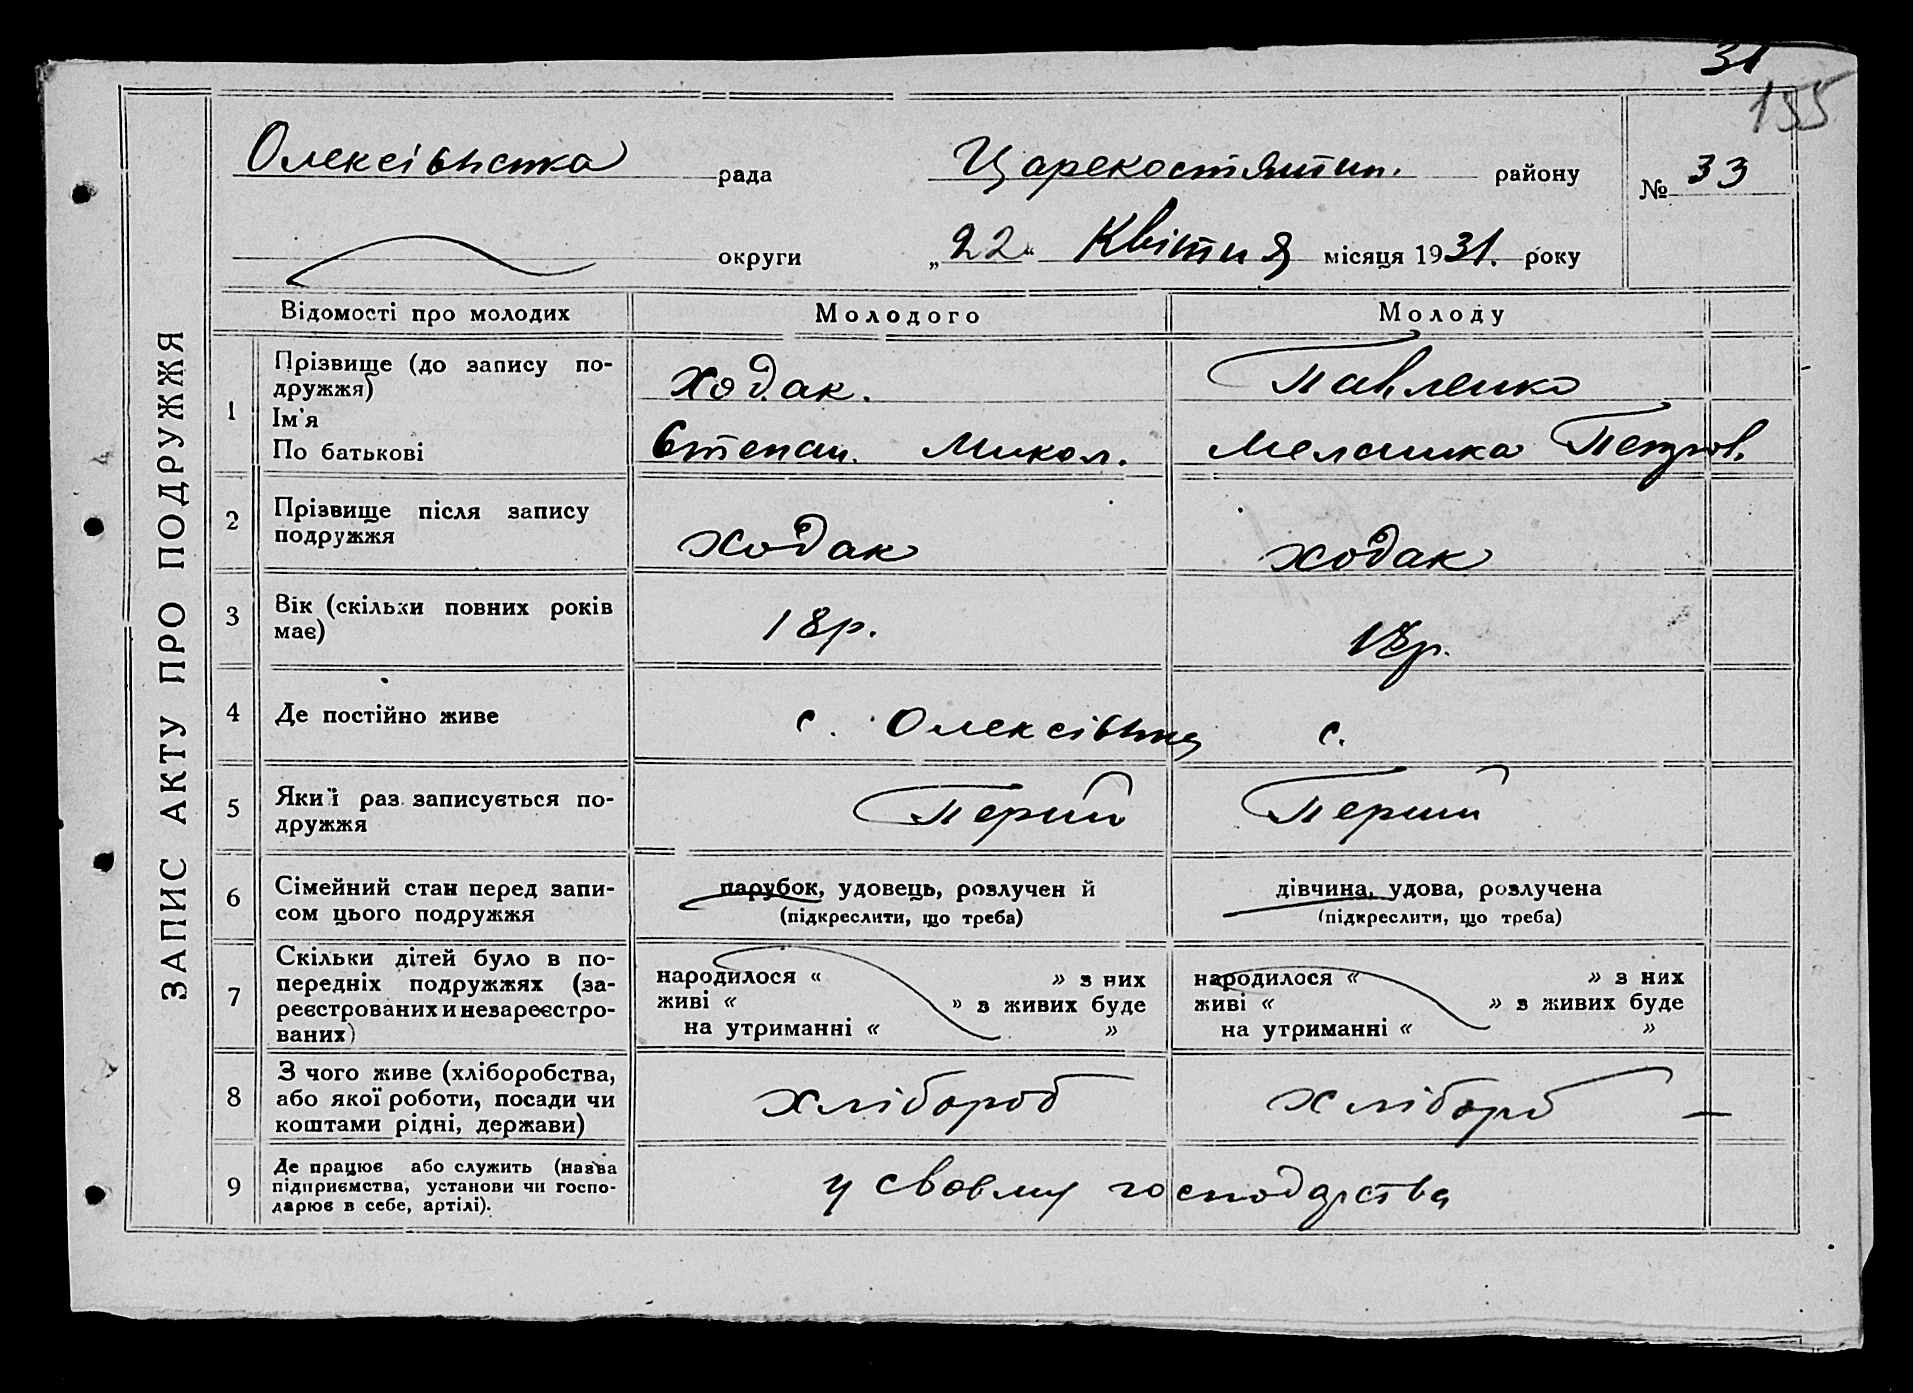 31
155
Олексівська рада Царекостянтин. району № 33
округи „22“ Квітня місяця 1931. року
ЗАПИС АКТУ ПРО ПОДРУЖЖЯ
Відомості про молодих Молодого Молоду
1 Прізвище (до запису по-
дружжя) Ходак. Павленко
Ім'я
По батькові Степан. Микол. Меланка Петров.
2 Прізвище після запису
подружжя Ходак Ходак
3 Вік (скільки повних років
має) 18р. 18р.
4 Де постійно живе с. Олексівка с.
5 Який раз записується по-
дружжя Перший Перший
6 Сімейний стан перед запи-
сом цього подружжя
парубок, удовець, розлучен й
(підкреслити, що треба)
дівчина, удова, розлучена
(підкреслити, що треба)
7 Скільки дітей було в по-
передніх подружжях (за-
реєстрованих и незареєстро-
ваних)
народилося « » з них
живі « » з живих буде
на утриманні « »
народилося « » з них
живі « » з живих буде
на утриманні « »
8 З чого живе (хліборобства,
або якої роботи, посади чи
коштами рідні, держави)
хлібороб хлібороб —
9 Де працює або служить (назва
підприємства, установи чи госпо-
дарює в себе, артілі).
у своєму господарства